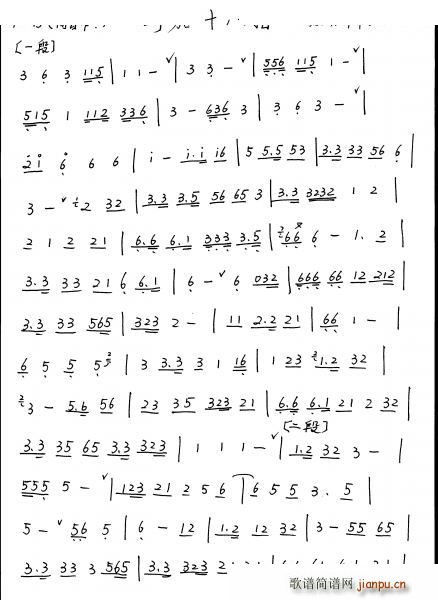 〔一段〕
3 6 3 115 | 1 1 - ˅ | 3 3 - ˅ | 556 115 1 - ˅ |
515 1 112 336 | 3 - 636 3 | 3 6 3 - ˅ |
2i 6 6 6 | i - i.i i6 | 5 5.5 53 | 3.3 33 56 6 |
3 - ˅ 2 32 | 3.3 3.5 56 65 3 | 3.3 3232 1 2 |
2 1 2 21 | 6.6 6.1 333 3.5 | 66 6 - 1. 2 |
3.3 33 21 6 6.1 | 6 - ˅ 6 032 | 666 66 12 212 |
3.3 33 565 | 323 2 - | 11 2.2 21 | 66 1 - |
6 5 5 5 | 3 3.3 3 1 16 | 1 23 1.2 32 |
3 - 5.6 56 | 23 35 323 21 | 6.6 6.1 21 2 32 |
〔二段〕
3.3 35 65 3.3 323 | 1 1 1 - ˅ | 1.2 32 3 - |
555 5 - ˅ | 123 21 2 5 6 | 6 5 5 3. 5 |
5 - ˅ 56 5 | 6 - 12 | 1.2 12 32 | 3 - 55 65 |
3.3 33 3 565 | 3.3 323 2
歌谱简谱网
jianpu.cn